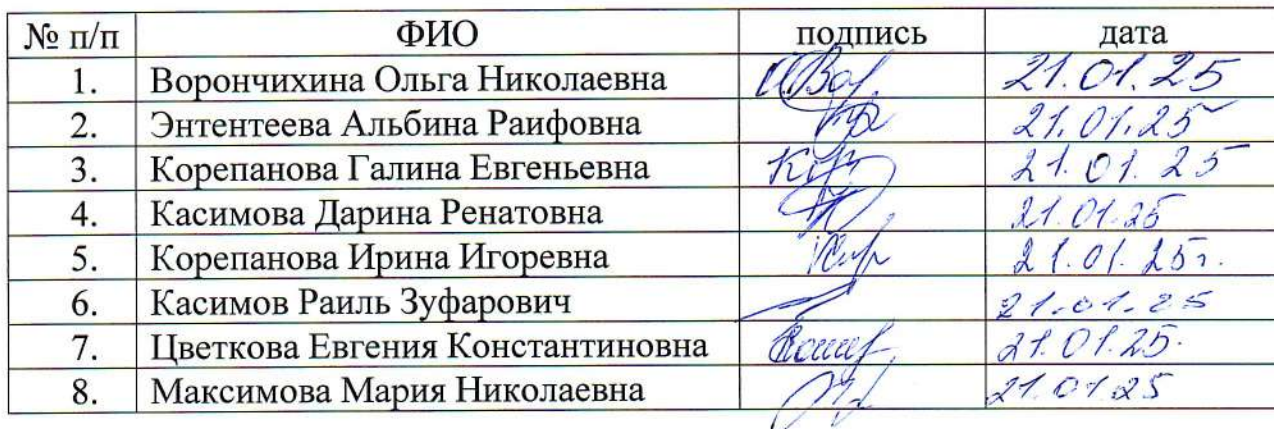 № п/п ФИО подпись дата
1. Ворончихина Ольга Николаевна 21.01.25
2. Энтентеева Альбина Раифовна 21.01.25
3. Корепанова Галина Евгеньевна 21.01.25
4. Касимова Дарина Ренатовна 21.01.25
5. Корепанова Ирина Игоревна 21.01.25г.
6. Касимов Раиль Зуфарович 21.01.25
7. Цветкова Евгения Константиновна 21.01.25.
8. Максимова Мария Николаевна 21.01.25